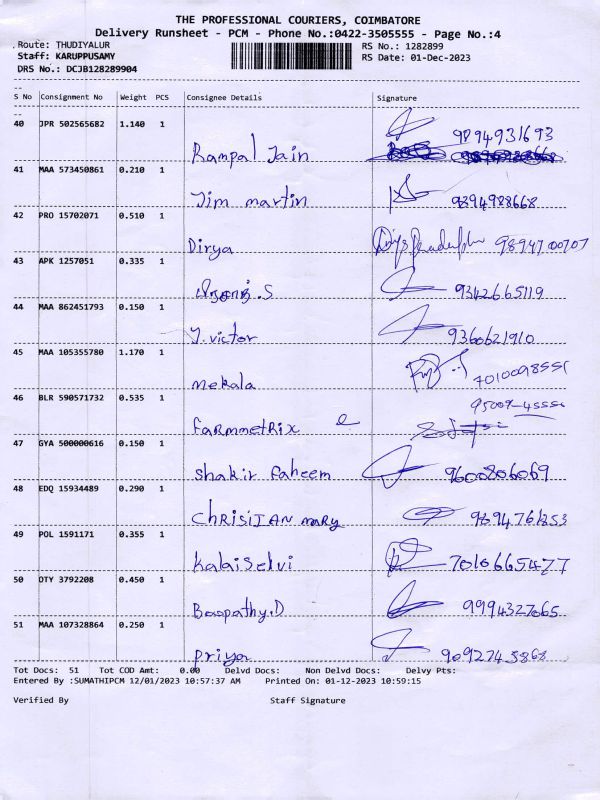 THE PROFESSIONAL COURIERS, COIMBATORE
Delivery Runsheet - PCM - Phone No.:0422-3505555 - Page No.:4
Route: THUDIYALUR RS No.: 1282899
Staff: KARUPPUSAMY RS Date: 01-Dec-2023
DRS No.: DCJB128289904
S No Consignment No Weight PCS Consignee Details Signature
40 JPR 502565682 1.140 1 9894931693
Rampal Jain
41 MAA 573450861 0.210 1
Jim martin 9894988668
42 PRO 15702071 0.510 1
Divya 9894700707
43 APK 1257051 0.335 1
9342665119
44 MAA 862451793 0.150 1
J.victor 9360621910
45 MAA 105355780 1.170 1
mekala 7010098551
46 BLR 590571732 0.535 1
FaRmmetRix
47 GYA 500000616 0.150 1
Shakir faheem 9600806069
48 EDQ 15934489 0.290 1
ChRISIIAN maRy
49 POL 1591171 0.355 1
Kalaiselvi 7010665477
50 DTY 3792208 0.450 1
Boopathy.D 9994327065
51 MAA 107328864 0.250 1
priya 9092745868
Tot Docs: 51 Tot COD Amt: 0.00 Delvd Docs: Non Delvd Docs: Delvy Pts:
Entered By :SUMATHIPCM 12/01/2023 10:57:37 AM Printed On: 01-12-2023 10:59:15
Verified By Staff Signature